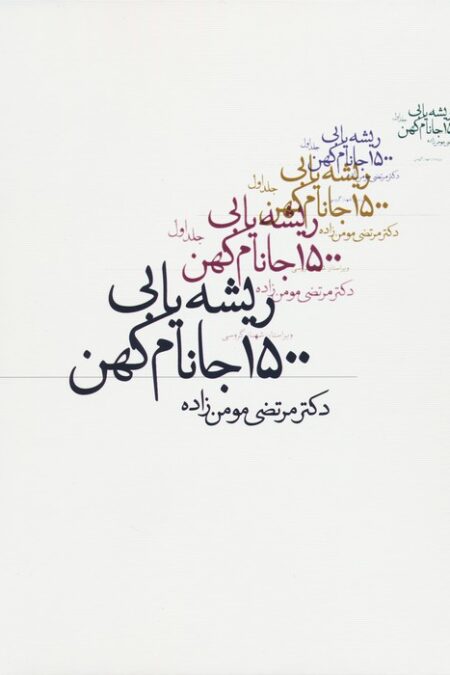 ریشه یابی
۱۵۰۰ جانام کهن
جلد اول
ریشه یابی
۱۵۰۰ جانام کهن
جلد اول
ریشه یابی
۱۵۰۰ جانام کهن
دکتر مرتضی مومن زاده
جلد اول
ریشه یابی
۱۵۰۰ جانام کهن
دکتر مرتضی مومن زاده
ریشه یابی
۱۵۰۰ جانام کهن
دکتر مرتضی مومن زاده